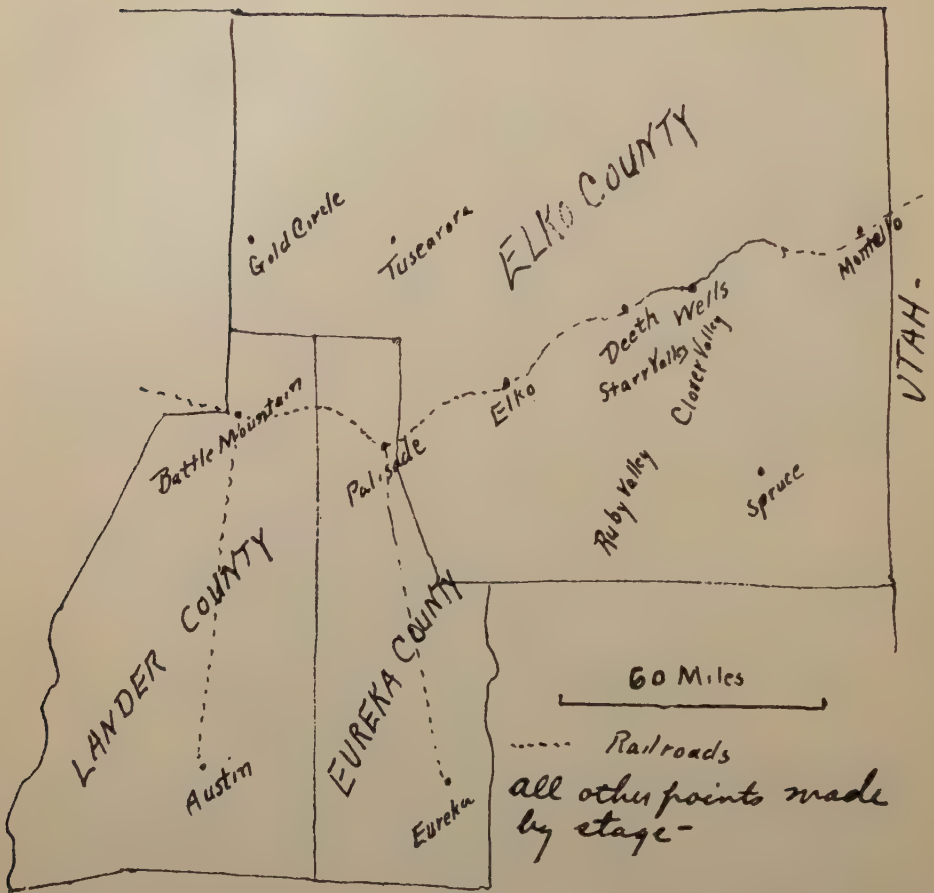 ELKO COUNTY
Gold Circle
Tuscarora
Montello
UTAH-
Deeth
Wells
Starr Valley
Clover Valley
Elko
Battle Mountain
Palisade
Ruby Valley
Spruce
LANDER COUNTY
EUREKA COUNTY
Austin
Eureka
60 Miles
Railroads
all other points made
by stage-